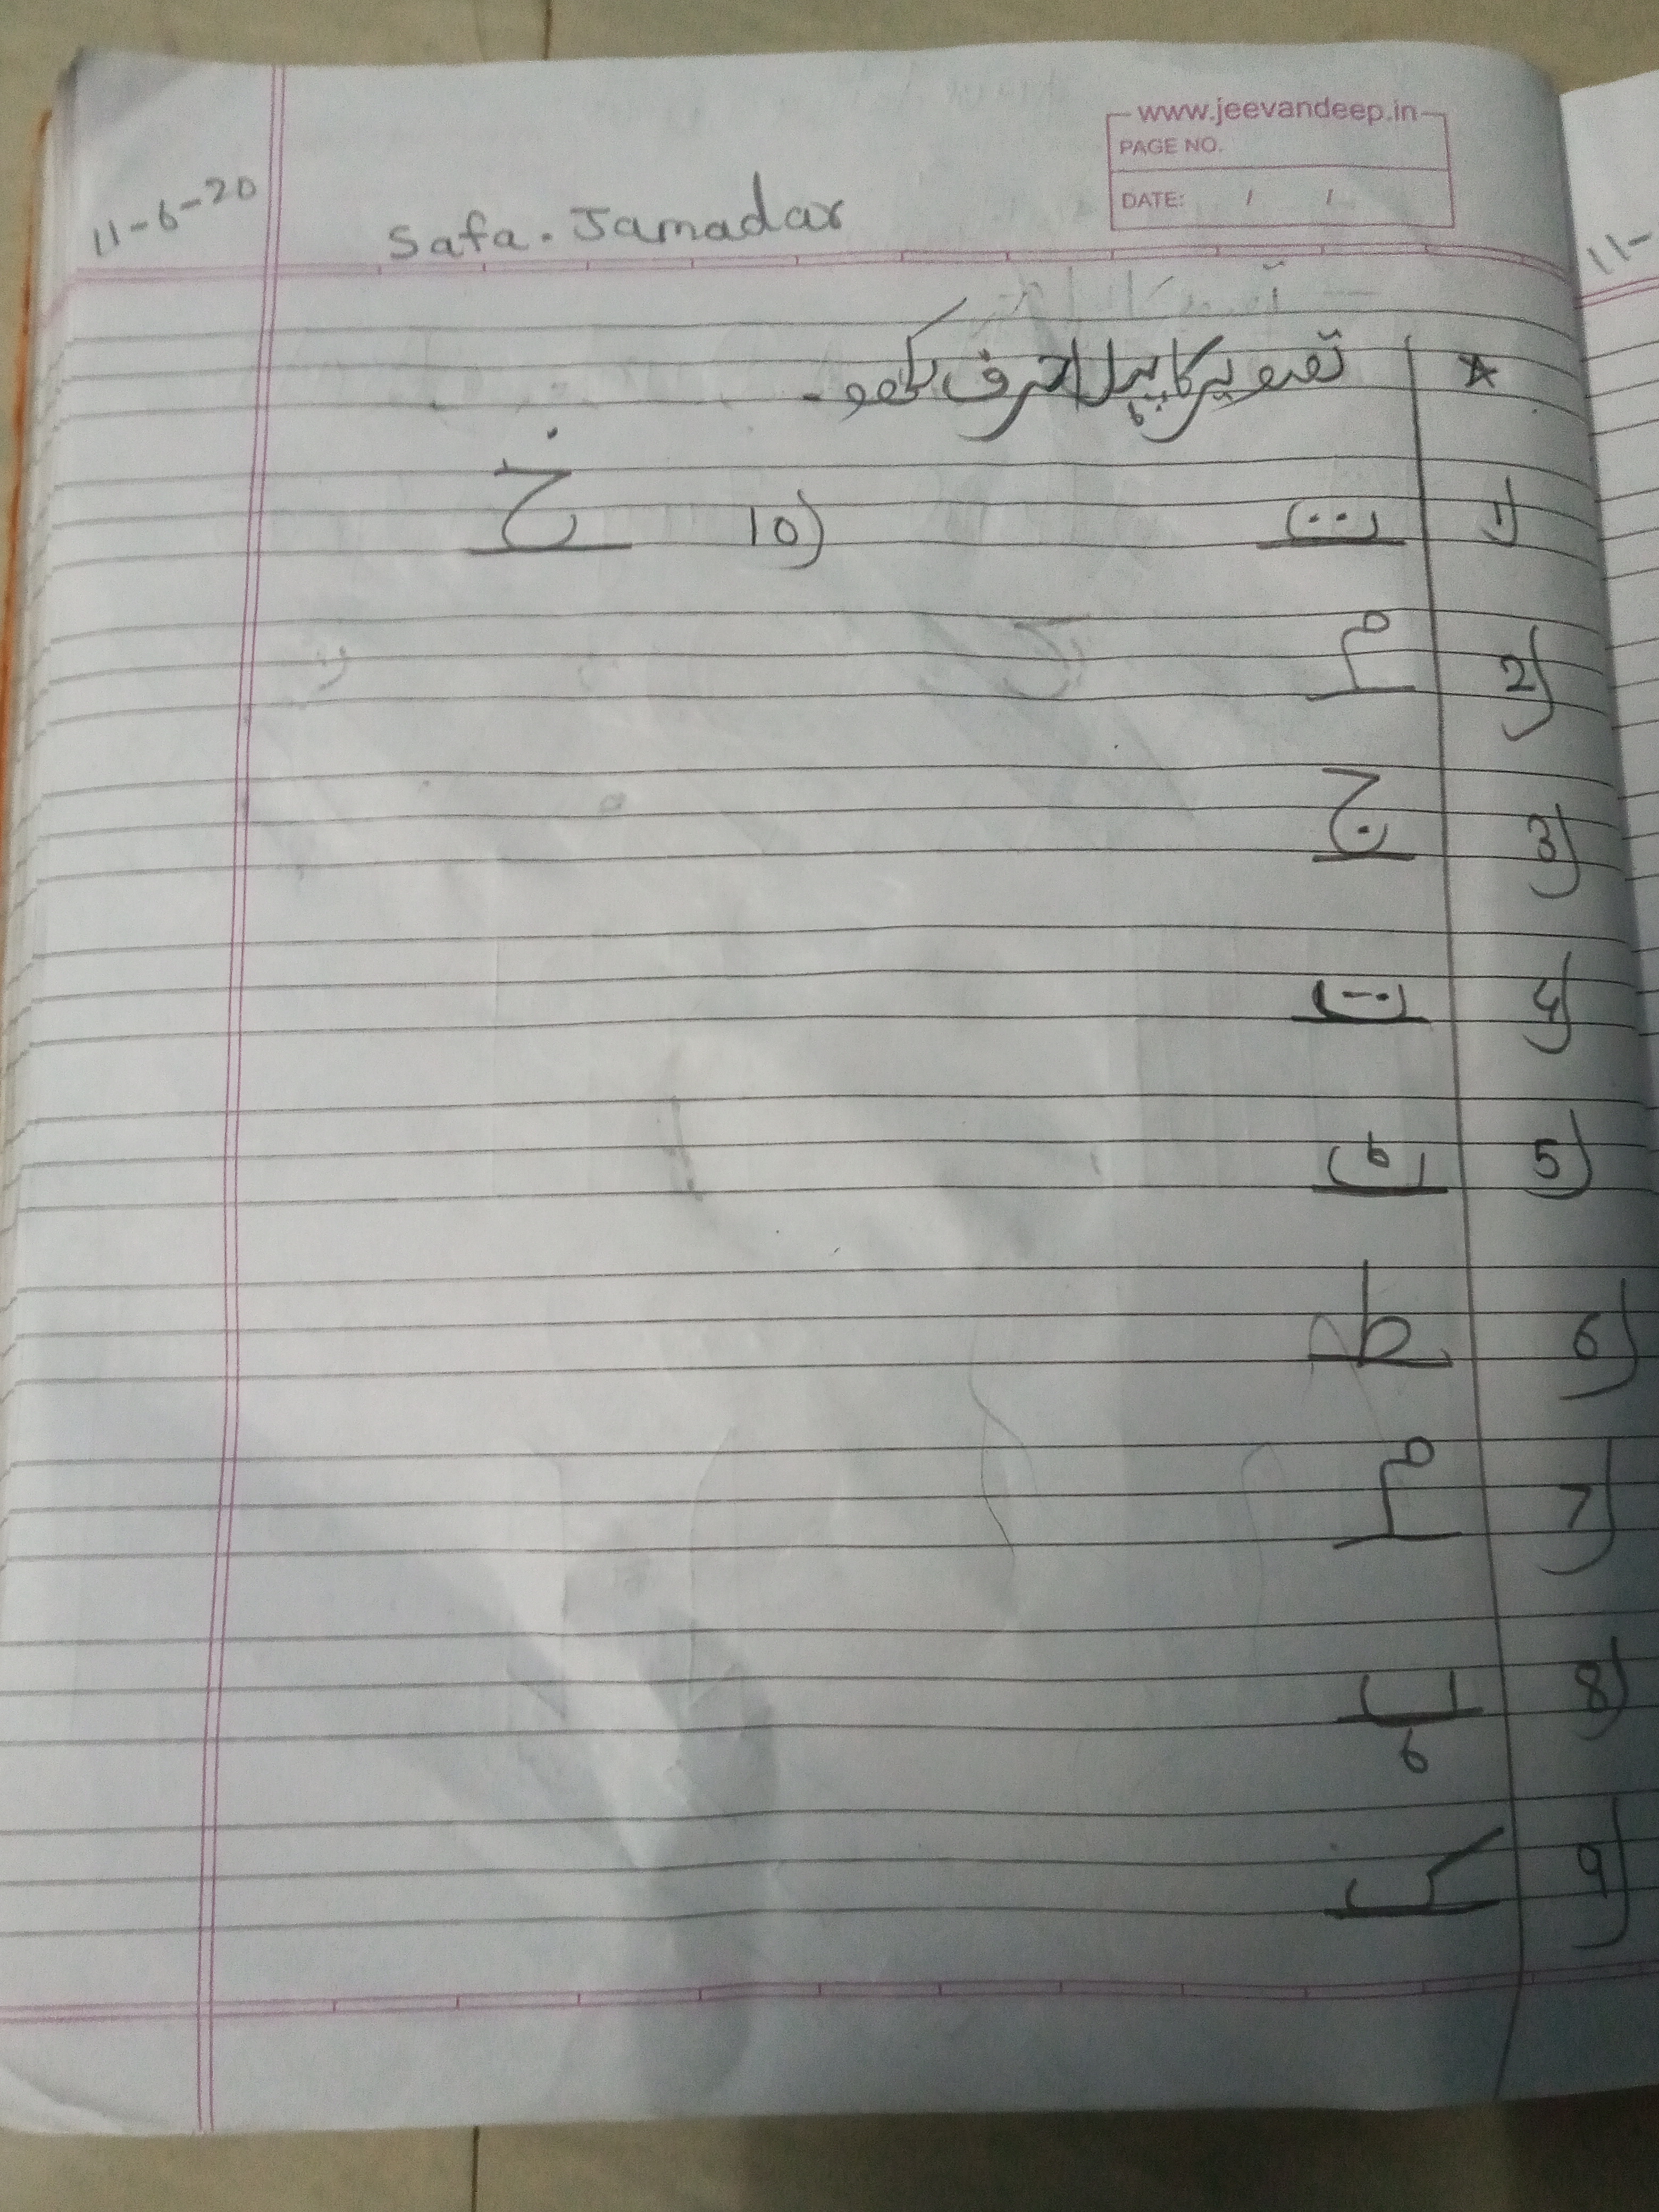 www.jeevandeep.in
PAGE NO.
DATE: / /
11-6-20
Safa. Jamadar
★ تصویر کا پہلا حرف لکھو۔
1) ت
10) خ
2) م
3) ج
4) ت
5) ٹ
6) ط
7) م
8) ب
9) ک
11-